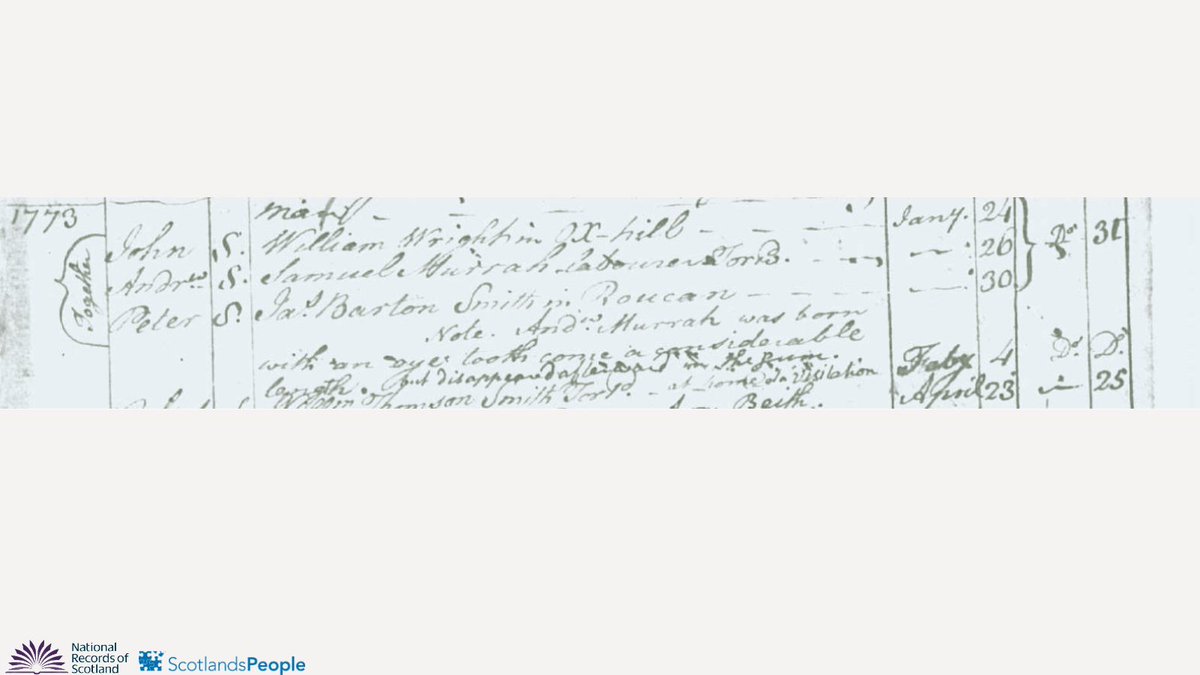 1773
Jany. 24
Together
John S. William Wright in Ox-hill 26 Do 31
Andrw S. Samuel Murrah Labourer Tord. 30
Peter S. Jas Barton Smith in Roucan
Note. Andw Murrah was born
with an eye tooth come a considerable
length. but disappeared afterward in the gum. Feby 4 Do Do
Thomson Smith Tord. at visitation April 23 25
Beith.
National
Records of
Scotland
ScotlandsPeople